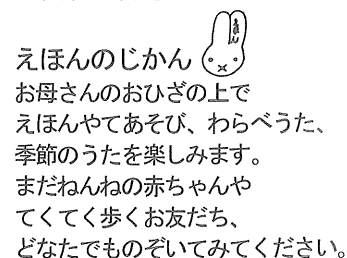 えほんのじかん
えほん
お母さんのおひざの上で
えほんやてあそび、わらべうた、
季節のうたを楽しみます。
まだねんねの赤ちゃんや
てくてく歩くお友だち、
どなたでものぞいてみてください。